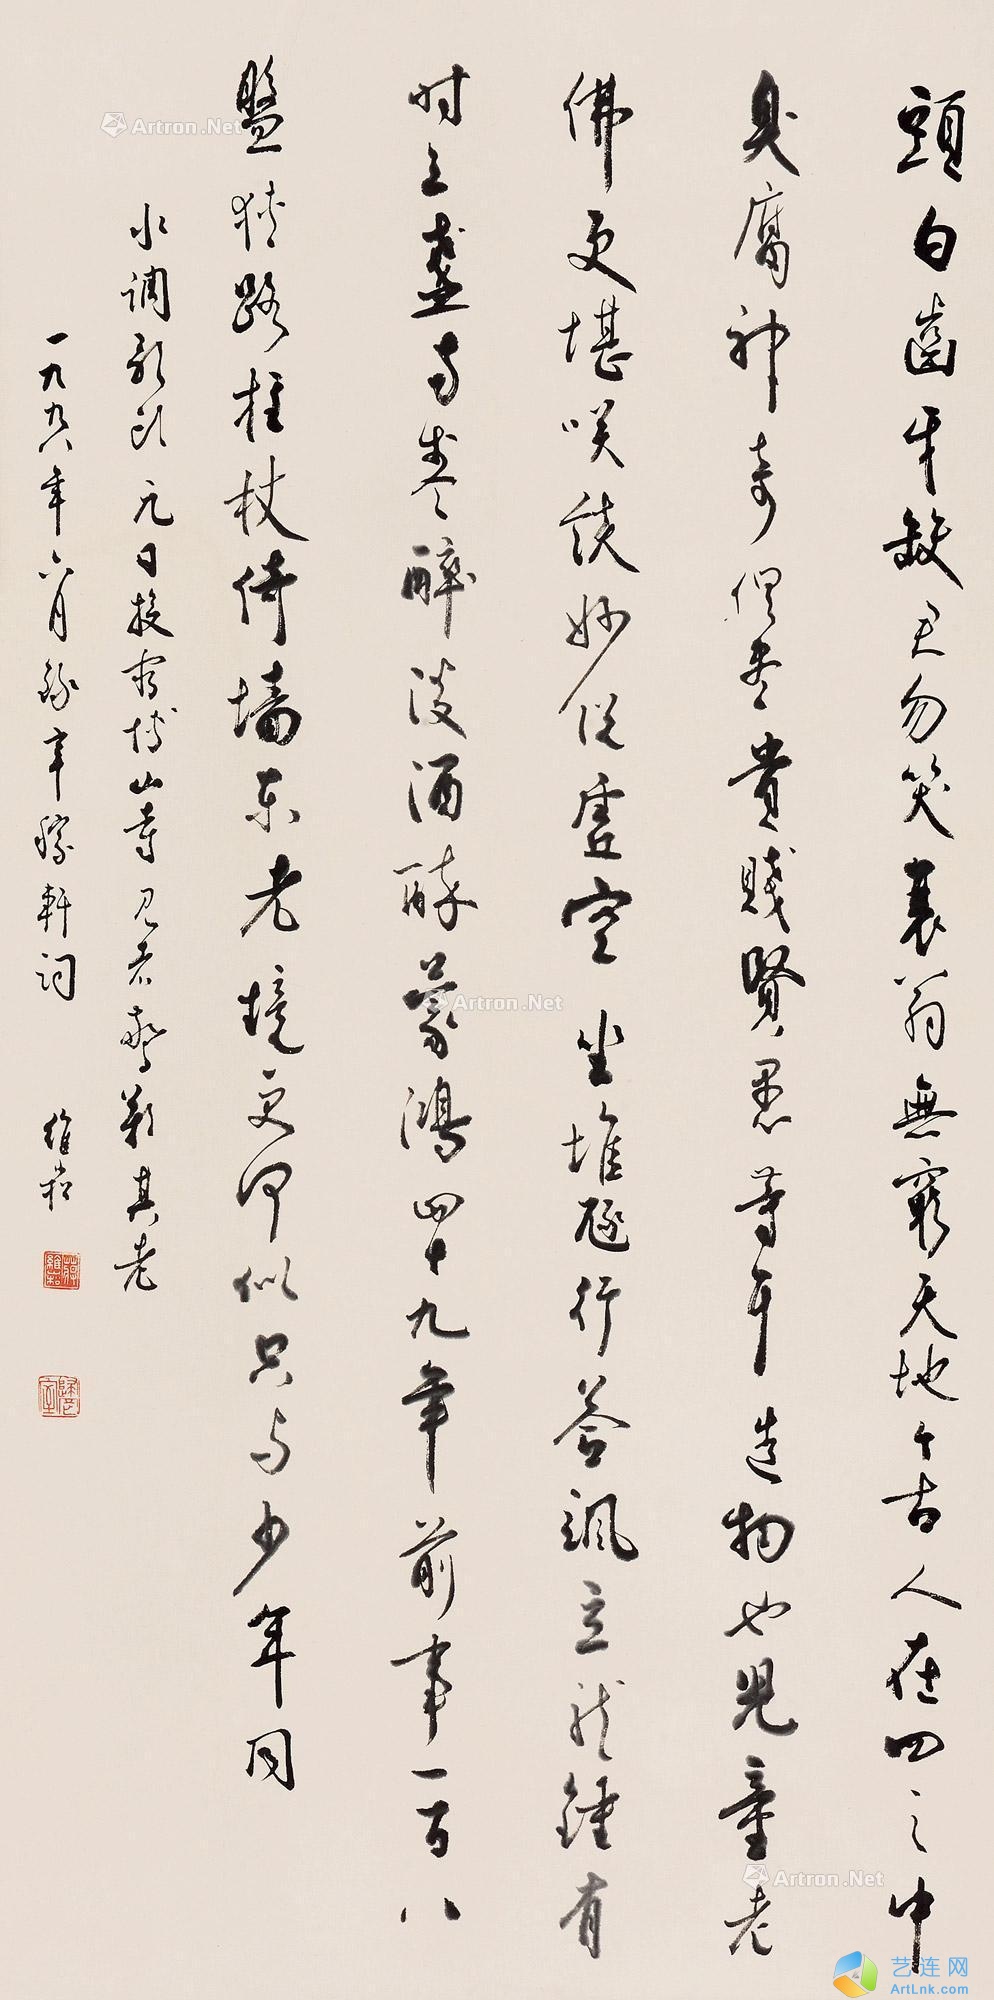 頭白齒牙缺君勿笑衰翁無窮天地今古人在四之中
臭腐神奇俱盡貴賤賢愚等耳造物也兒童老
佛更堪咲談妙説虛空坐堆豗行答颯立龙鍾有
时三盞两盞醉淡酒醉蒙鴻四十九年前事一百八
盤狹路拄杖倚墻东老境更何似只与少年同
水調歌頭元日投宿博山寺見者驚歎其老
一九九八年六月錄辛稼軒詞 維崧
蔣維崧
Artron.Net
Artron.Net
Artron.Net
艺连网
ArtLnk.com